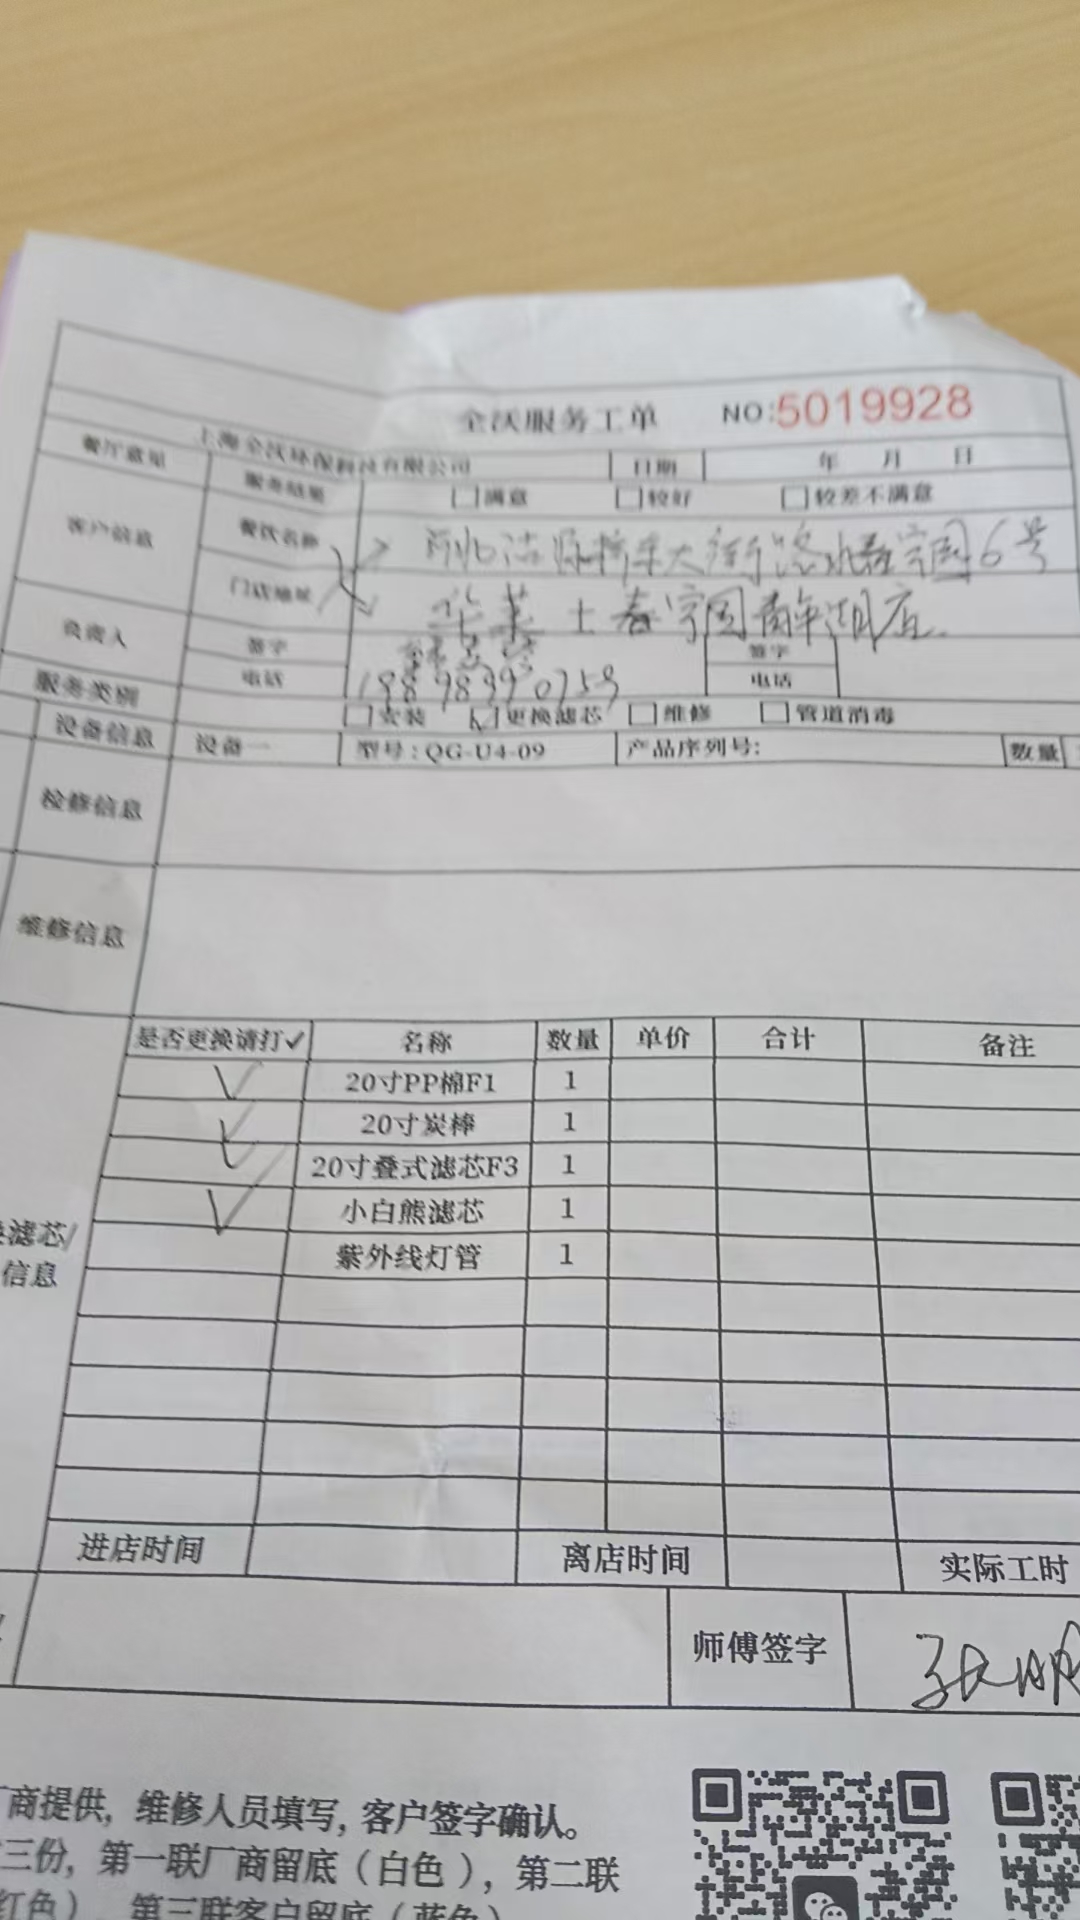 全沃服务工单 NO:5019928
上海全沃环保科技有限公司 日期 年 月 日
餐厅意见 服务结果 满意 较好 较差不满意
客户信息 餐饮名称 大街 6号
门店地址 华莱士春字园青年湖店
负责人 签字 签字
电话 19898990759 电话
服务类别 安装 更换滤芯 维修 管道消毒
设备信息 设备一 型号:QG-U4-09 产品序列号: 数量
检修信息
维修信息
是否更换请打✓ 名称 数量 单价 合计 备注
✓ 20寸PP棉F1 1
✓ 20寸炭棒 1
✓ 20寸叠式滤芯F3 1
✓ 小白熊滤芯 1
紫外线灯管 1
滤芯/
信息
进店时间 离店时间 实际工时
师傅签字
商提供，维修人员填写，客户签字确认。
三份，第一联厂商留底（白色），第二联
红色），第三联客户留底（蓝色）